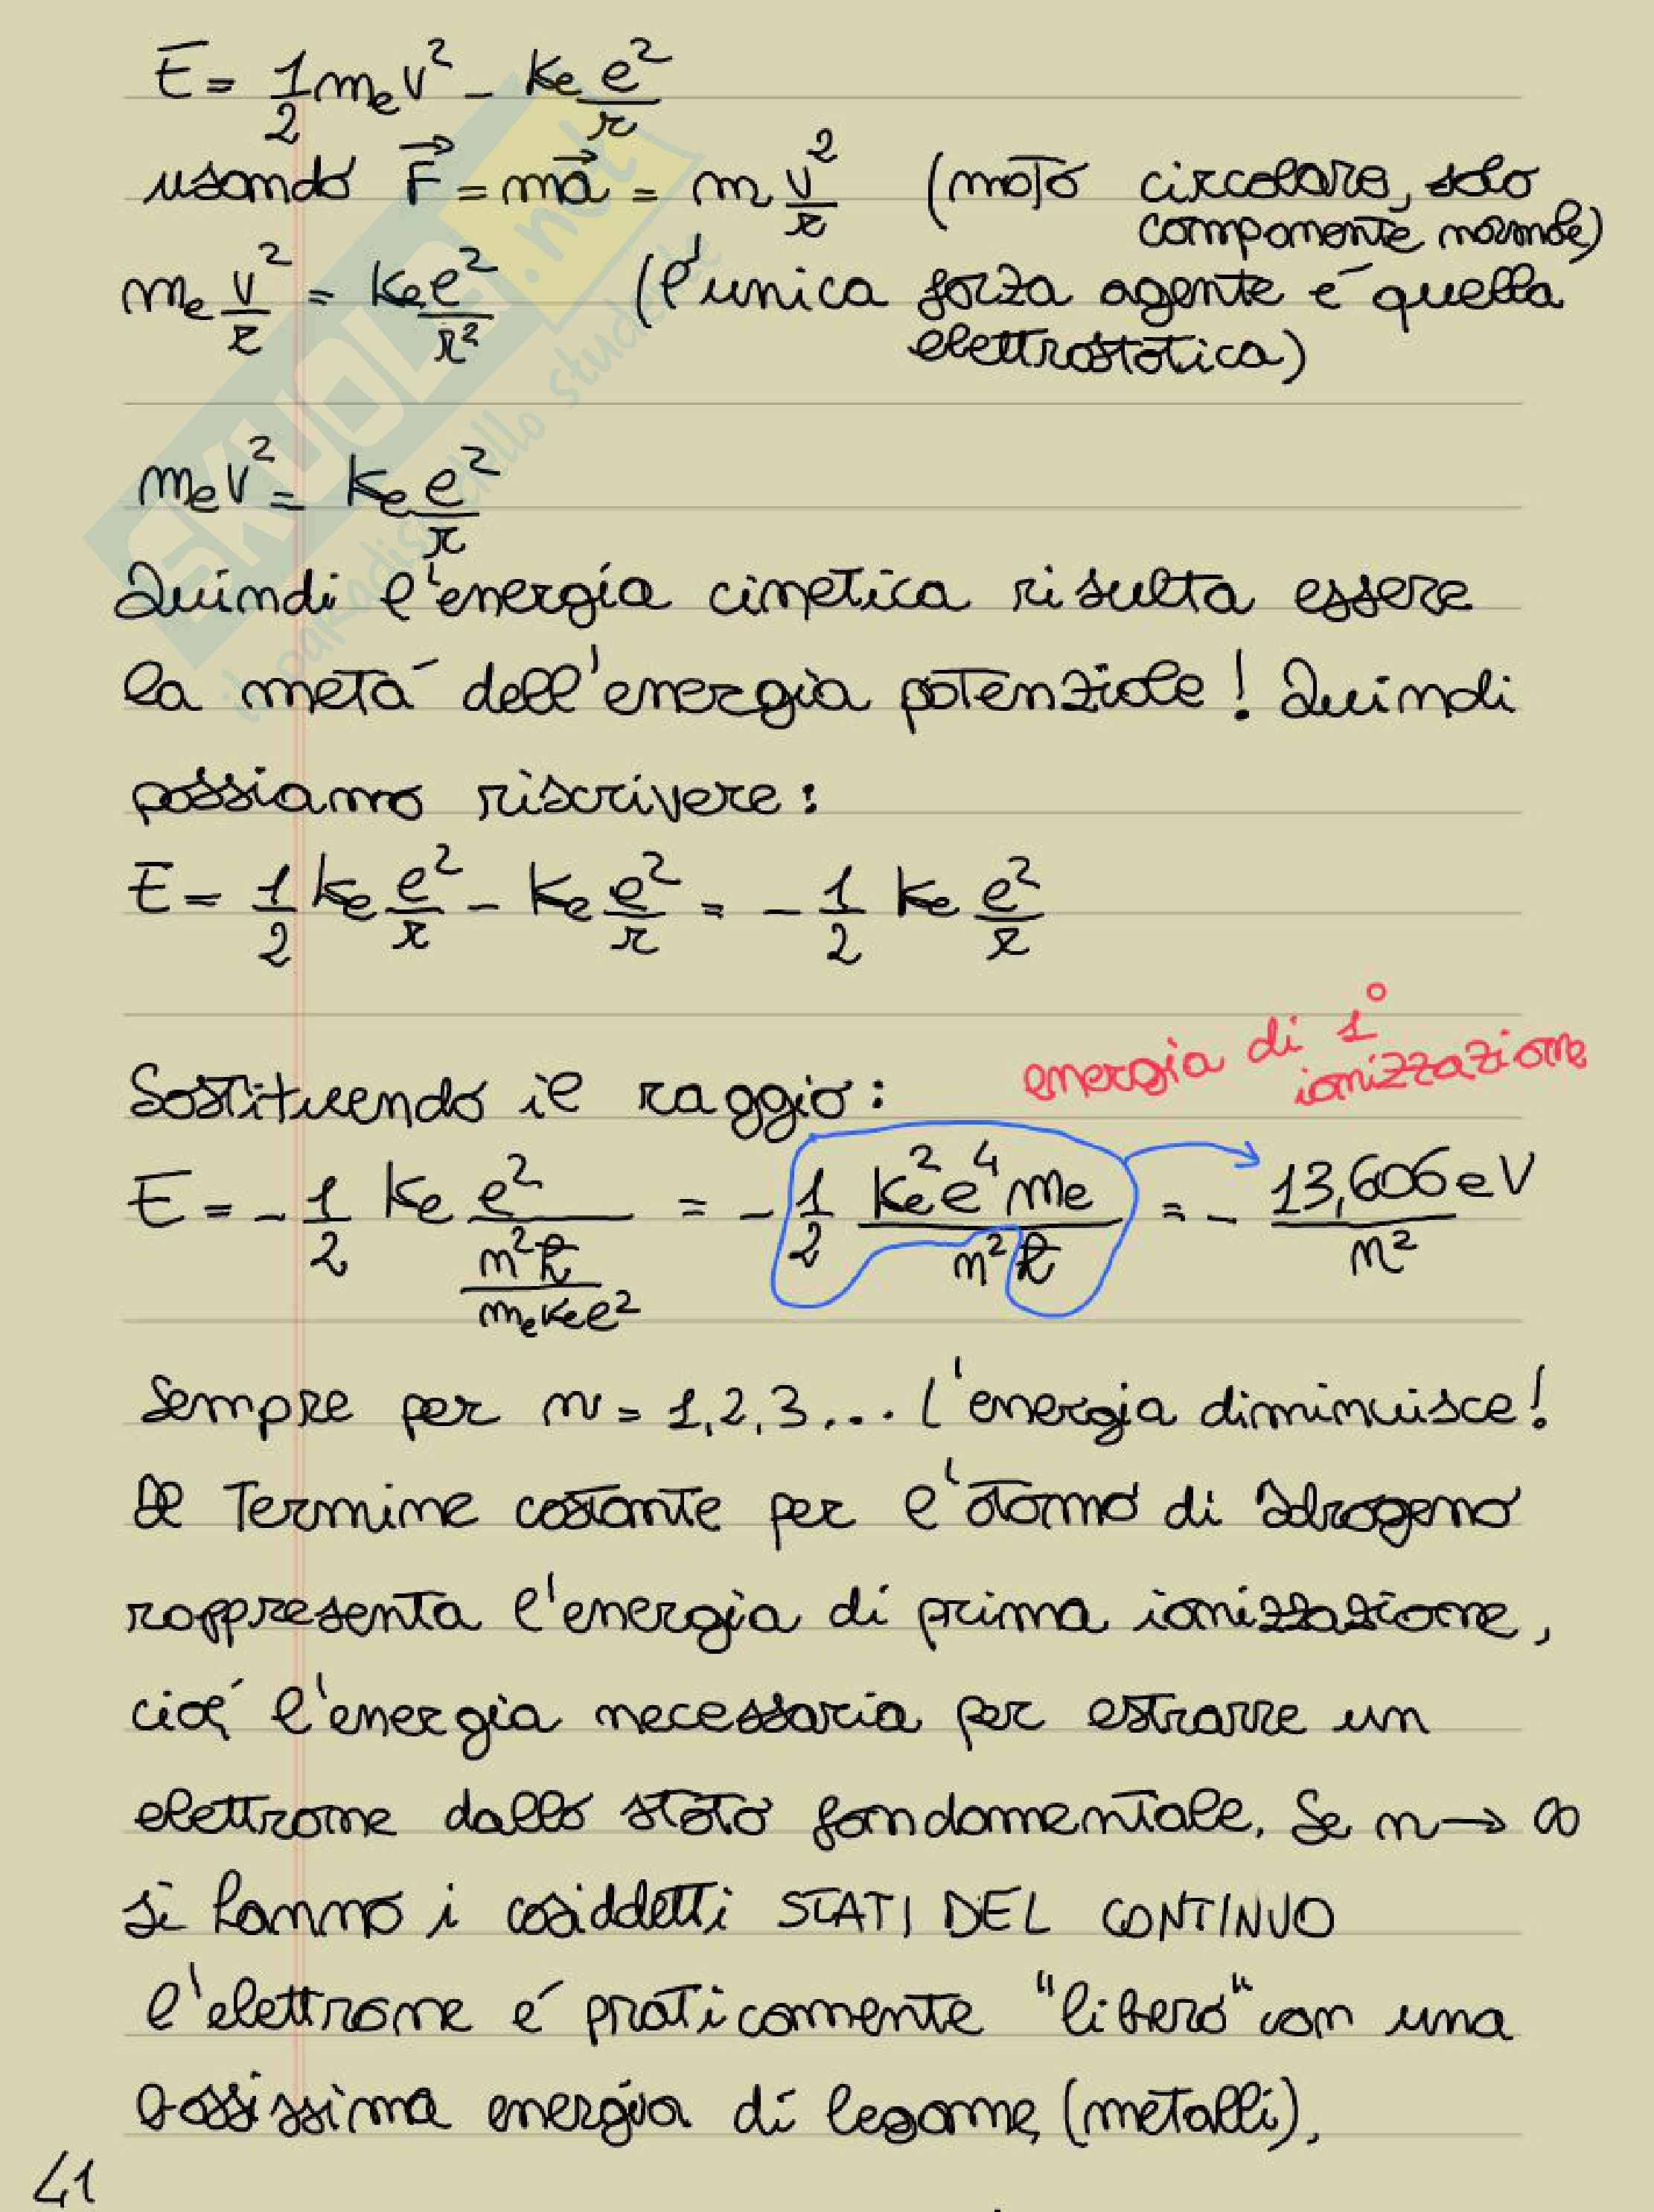 E = 1/2 mₑv² - kₑ e²/r
usando F⃗ = ma⃗ = m v²/r (moto circolare, solo
componente normale)
mₑ v²/r = kₑ e²/r² (l'unica forza agente é quella
elettrostatica)
mₑv² = kₑ e²/r
Quindi l'energia cinetica risulta essere
la metá dell'energia potenziale! Quindi
possiamo riscrivere:
E = 1/2 kₑ e²/r - kₑ e²/r = - 1/2 kₑ e²/r
energia di 1°
ionizzazione
Sostituendo il raggio:
E = - 1/2 kₑ e²/(n²ħ/(mₑkₑe²)) = - 1/2 kₑ²e⁴mₑ/(n²ħ) = - 13,606 eV/n²
Sempre per n = 1,2,3,... l'energia diminuisce!
Il termine costante per l'atomo di Idrogeno
rappresenta l'energia di prima ionizzazione,
cioé l'energia necessaria per estrarre un
elettrone dallo stato fondamentale. Se n → ∞
si hanno i cosiddetti STATI DEL CONTINUO
l'elettrone é praticamente "libero" con una
bassissima energia di legame (metalli).
41
SKUOLA.net
il paradiso dello studente